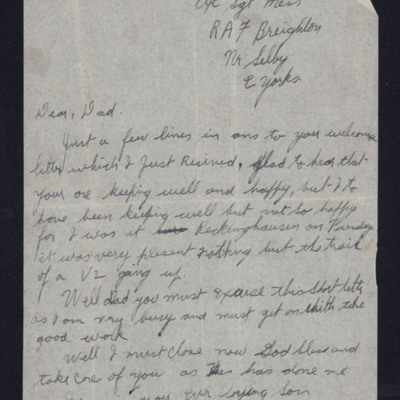 Sgt Mess
R A F Breighton
Nr Selby
E Yorks.
Dear, Dad.
Just a few lines in ans to your welcome
letter which I Just Recived, Glad to hear that
your are keeping well and happy, but I to
have been keeping well but not so happy
for I was at Recklinghausen on Tuesday
it was very present nothing but the trail
of a V2 going up.
Well dad you must Excuse this Short letter
as I am very busy and must get on with the
good work
Well I must close now God bless and
take care of you as has done me
your Ever loving Son